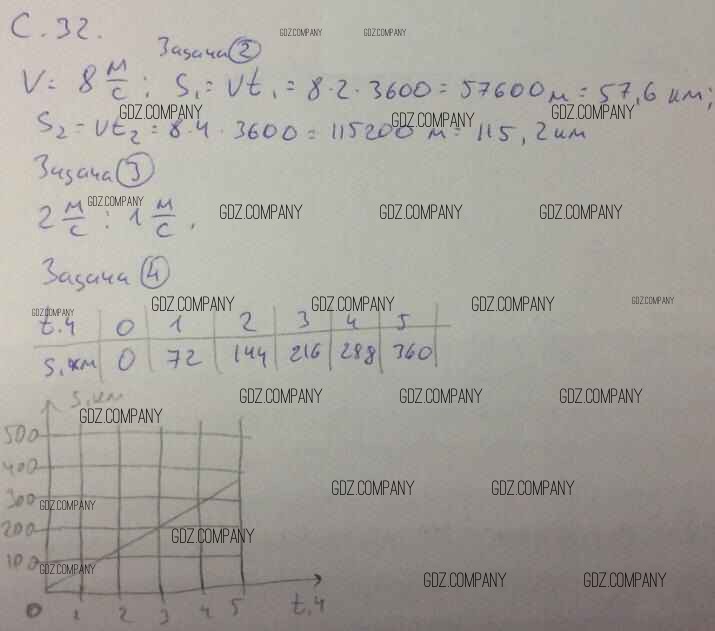 С. 32.
GDZ.COMPANY GDZ.COMPANY
Задача 2
V = 8 м/с; S₁ = Vt₁ = 8·2·3600 = 57600 м = 57,6 км;
GDZ.COMPANY GDZ.COMPANY GDZ.COMPANY
S₂ = Vt₂ = 8·4·3600 = 115200 м = 115,2 км
Задача 3
GDZ.COMPANY
2 м/с; 1 м/с.
GDZ.COMPANY GDZ.COMPANY GDZ.COMPANY
Задача 4
GDZ.COMPANY GDZ.COMPANY GDZ.COMPANY GDZ.COMPANY
GDZ.COMPANY
t,ч 0 1 2 3 4 5
S,км 0 72 144 216 288 360
S,км
GDZ.COMPANY GDZ.COMPANY GDZ.COMPANY
GDZ.COMPANY
500
400
GDZ.COMPANY GDZ.COMPANY
300
GDZ.COMPANY
200
GDZ.COMPANY
100
GDZ.COMPANY
GDZ.COMPANY GDZ.COMPANY
0 1 2 3 4 5 t,ч